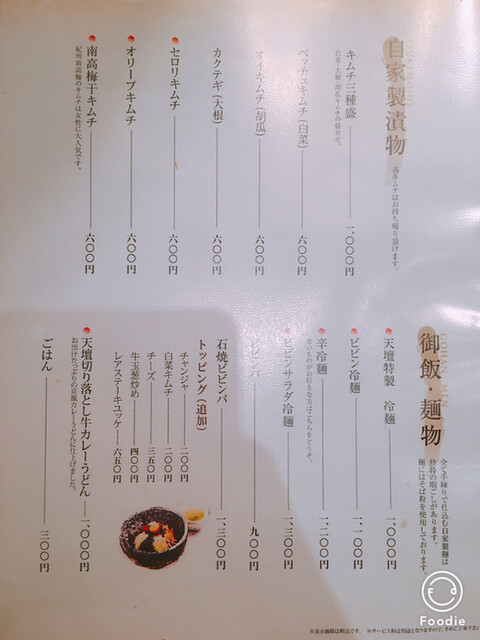 自家製漬物
各キムチはお持ち帰り頂けます。
キムチ三種盛 一、〇〇〇円
白菜・大根・胡瓜キムチの盛合せ。
ペッチュキムチ(白菜) 六〇〇円
オイキムチ(胡瓜) 六〇〇円
カクテギ(大根) 六〇〇円
セロリキムチ 六〇〇円
オリーブキムチ 六〇〇円
南高梅干キムチ 六〇〇円
紀州南高梅のキムチは女性に大人気です。
御飯・麺物
全て手練りで仕込む自家製麺は
独特の喉ごしがあります。
麺にはそば粉を使用しております。
天壇特製 冷麺 一、〇〇〇円
ビビン冷麺 一、一〇〇円
辛冷麺 一、二〇〇円
辛いものがお好きな方はこちらをどうぞ。
ビビンサラダ冷麺 一、三〇〇円
ビビンバ 九〇〇円
石焼ビビンバ 一、三〇〇円
トッピング(追加)
チャンジャ 二〇〇円
白菜キムチ 二〇〇円
チーズ 三五〇円
牛玉葱炒め 四〇〇円
レアステーキユッケ 六五〇円
天壇切り落とし牛カレーうどん 一、〇〇〇円
お出汁たっぷりの京風カレーうどんに仕上げました。
ごはん 三〇〇円
※表示価格は税込です。 ※サービス料は別途となりますので、予めご了承下さい。
Foodie